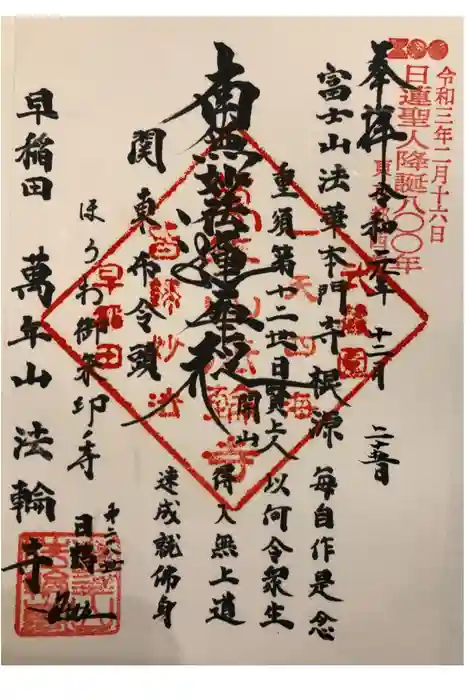 令和三年二月十六日
日蓮聖人降誕八〇〇年
奉拝 令和元年 十二月
富士山法華本門寺根源 毎自作是念
重須第十二世日上人 以何令衆生
開山 得入無上道
南無妙法蓮華経
関東布令頭 速成就佛身
ほうわ御朱印
早稲田 萬年山 法輪寺
一天四海
皆歸妙法
武蔵國
早稲田
法輪寺